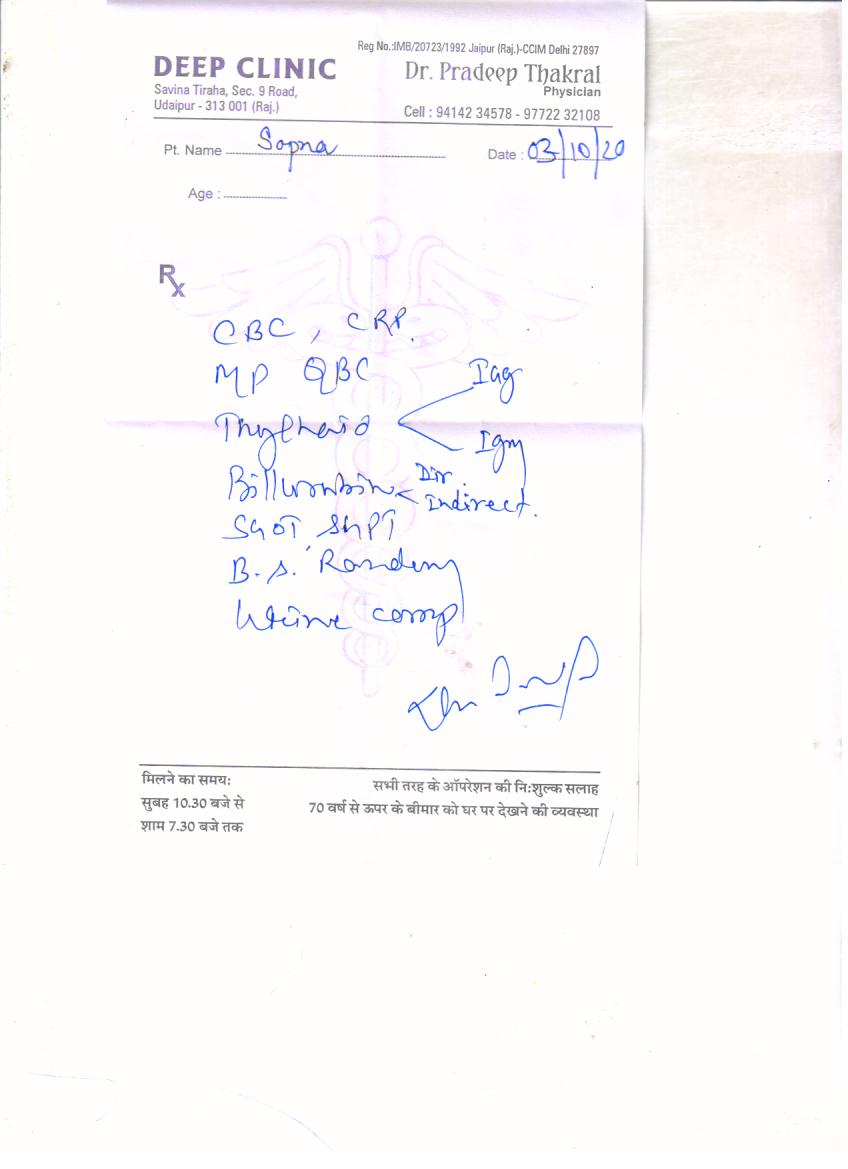 Reg No.:IMB/20723/1992 Jaipur (Raj.)-CCIM Delhi 27897
DEEP CLINIC
Dr. Pradeep Thakral
Physician
Savina Tiraha, Sec. 9 Road,
Udaipur - 313 001 (Raj.)
Cell : 94142 34578 - 97722 32108
Pt. Name Sapna
Date : 03/10/20
Age :
Rx
CBC, CRP.
MP QBC
Thyphoid < Iag
Igm
Billurubin < Dir.
Indirect.
SGOT SGPT
B.S. Random
Urine comp
मिलने का समय:
सुबह 10.30 बजे से
शाम 7.30 बजे तक
सभी तरह के ऑपरेशन की नि:शुल्क सलाह
70 वर्ष से ऊपर के बीमार को घर पर देखने की व्यवस्था